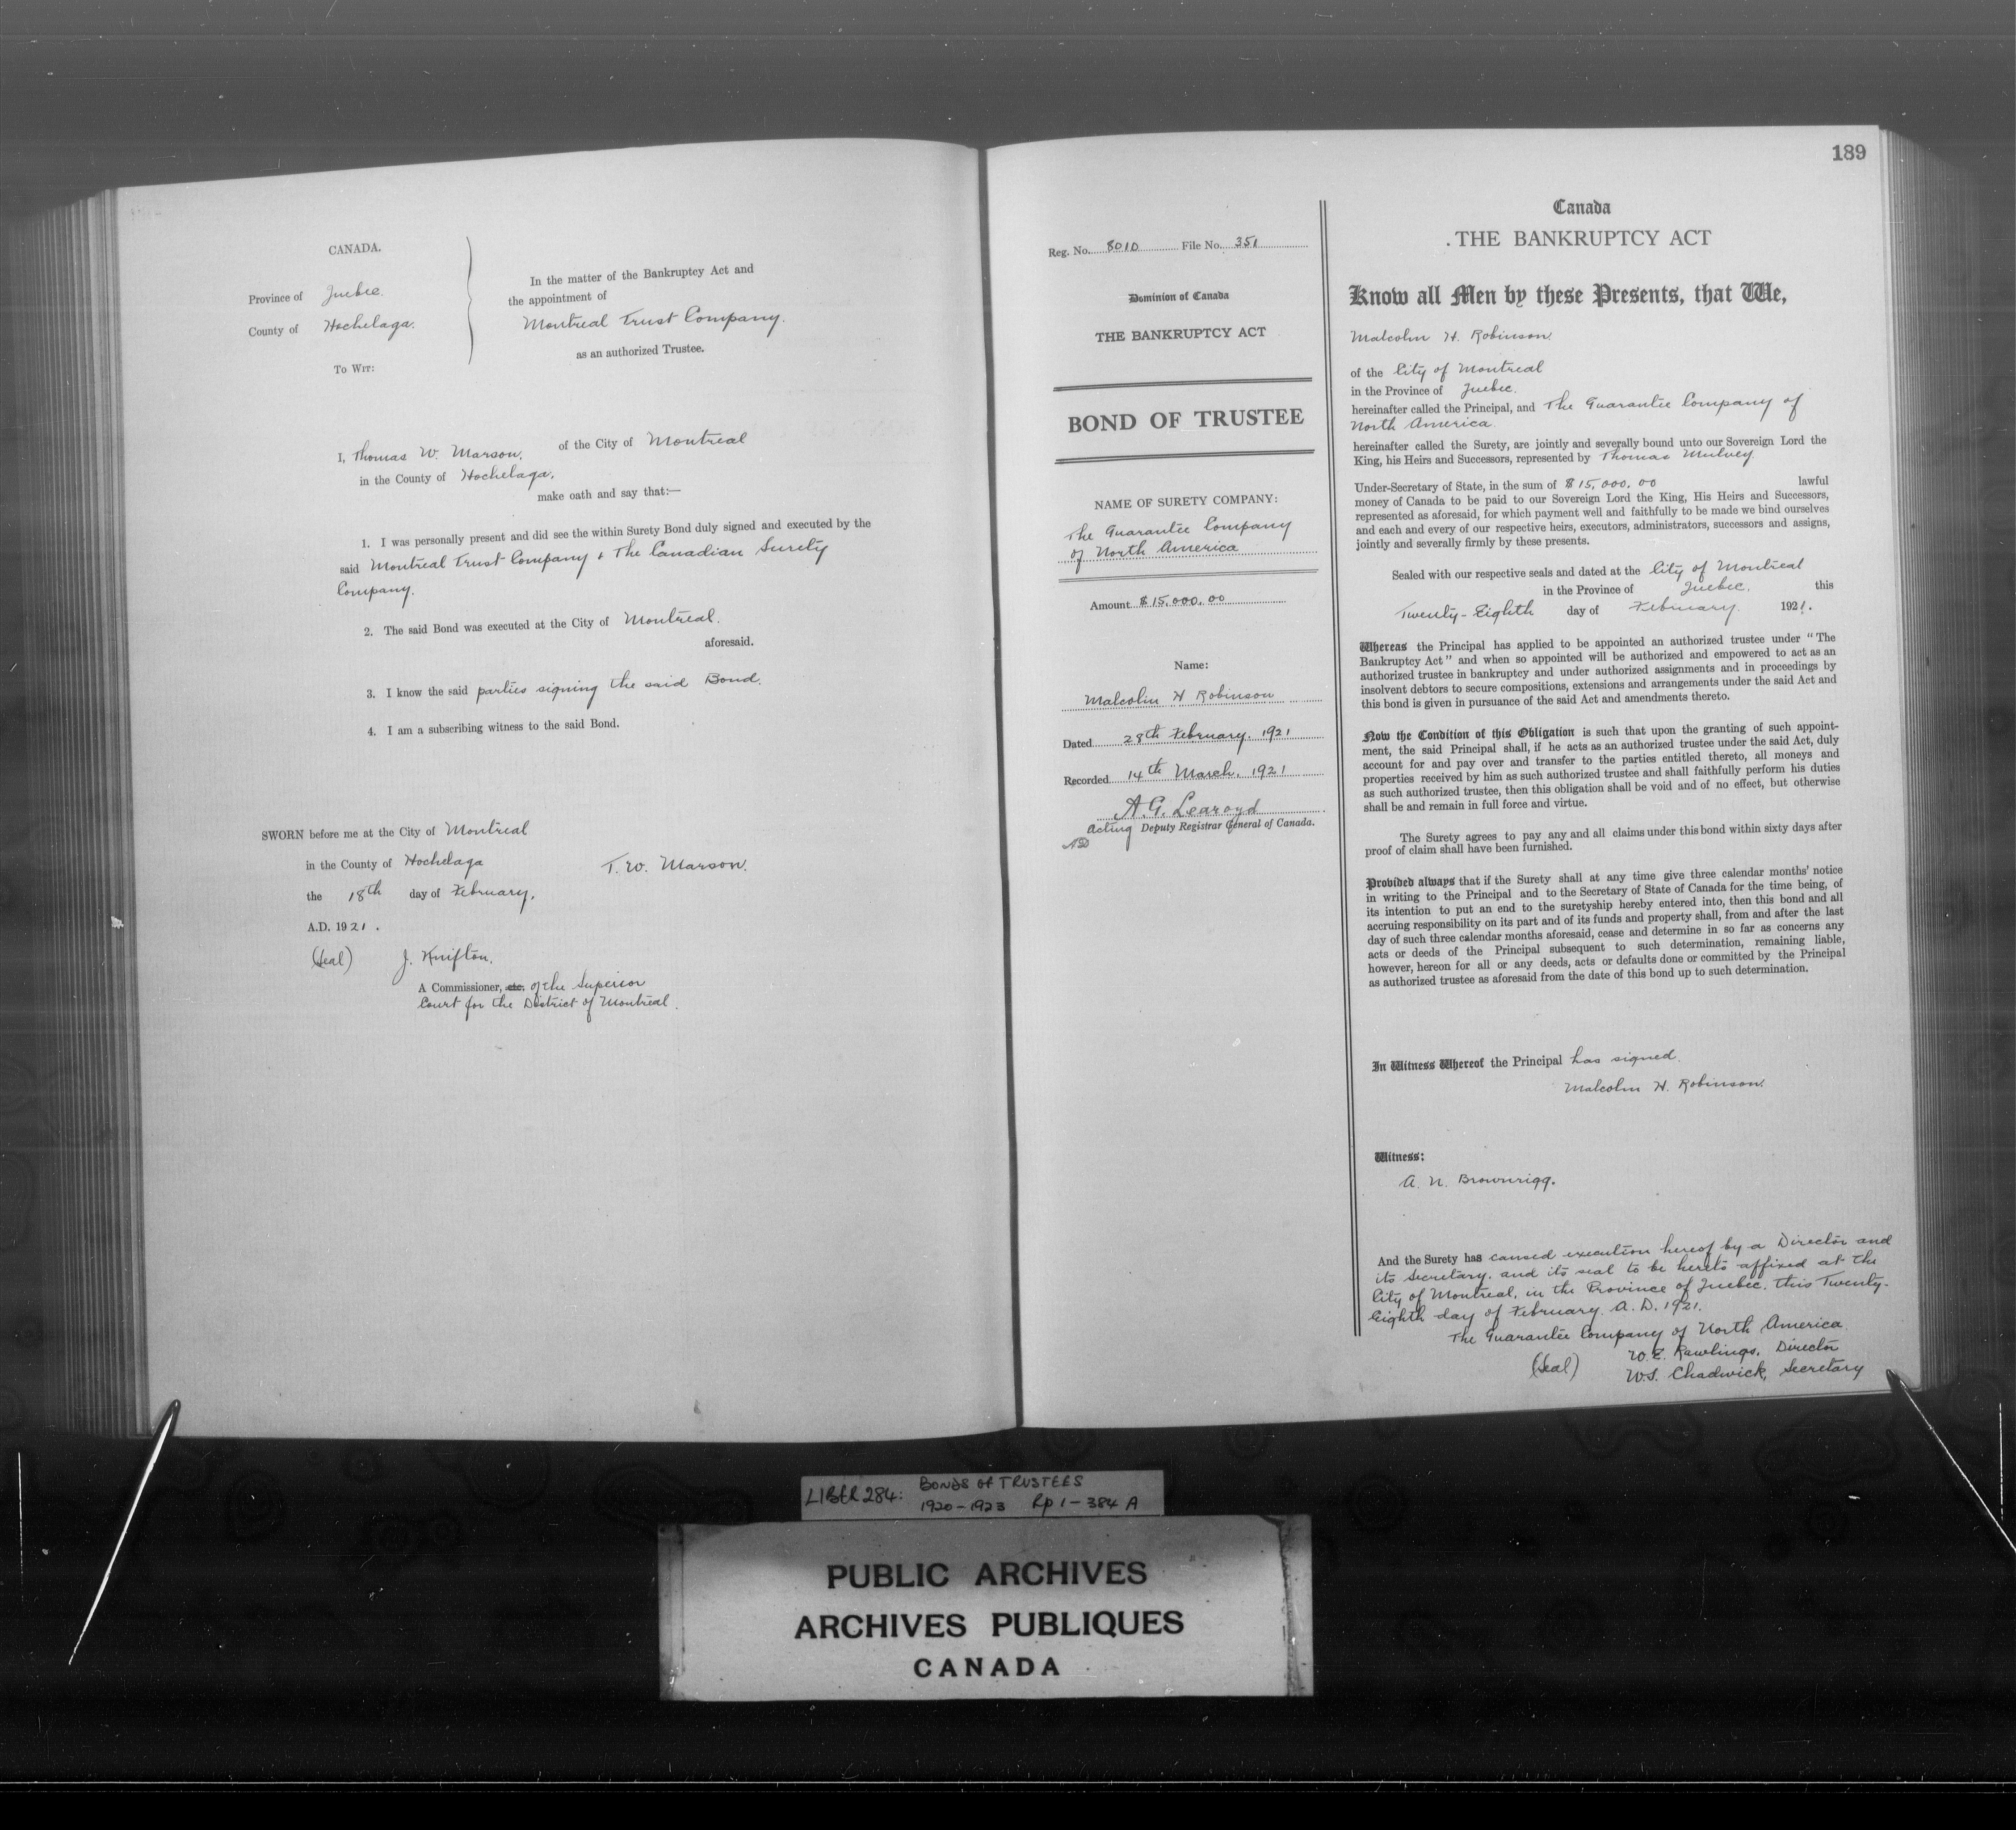 CANADA.
Province of Quebec.
County of Hochelaga.
To Wit:
In the matter of the Bankruptcy Act and
the appointment of
Montreal Trust Company.
as an authorized Trustee.
I, Thomas W. Marson, of the City of Montreal
in the County of Hochelaga,
make oath and say that:—
1. I was personally present and did see the within Surety Bond duly signed and executed by the
said Montreal Trust Company & The Canadian Surety
Company.
2. The said Bond was executed at the City of Montreal.
aforesaid.
3. I know the said parties signing the said Bond.
4. I am a subscribing witness to the said Bond.
SWORN before me at the City of Montreal
in the County of Hochelaga
the 18th day of February,
A.D. 1921.
T. W. Marson.
(Seal) J. Knifton.
A Commissioner, etc. of the Superior
Court for the District of Montreal.
189
Reg. No. 8010 File No. 351
Dominion of Canada
THE BANKRUPTCY ACT
BOND OF TRUSTEE
NAME OF SURETY COMPANY:
The Guarantee Company
of North America
Amount $15,000.00
Name:
Malcolm H Robinson
Dated 28th February, 1921
Recorded 14th March, 1921
A. G. Learoyd
Acting Deputy Registrar General of Canada.
Canada
THE BANKRUPTCY ACT
Know all Men by these Presents, that We,
Malcolm H. Robinson.
of the City of Montreal
in the Province of Quebec.
hereinafter called the Principal, and The Guarantee Company of
North America.
hereinafter called the Surety, are jointly and severally bound unto our Sovereign Lord the
King, his Heirs and Successors, represented by Thomas Mulvey
Under-Secretary of State, in the sum of $15,000.00 lawful
money of Canada to be paid to our Sovereign Lord the King, His Heirs and Successors,
represented as aforesaid, for which payment well and faithfully to be made we bind ourselves
and each and every of our respective heirs, executors, administrators, successors and assigns,
jointly and severally firmly by these presents.
Sealed with our respective seals and dated at the City of Montreal
in the Province of Quebec, this
Twenty-Eighth day of February. 1921.
Whereas the Principal has applied to be appointed an authorized trustee under "The
Bankruptcy Act" and when so appointed will be authorized and empowered to act as an
authorized trustee in bankruptcy and under authorized assignments and in proceedings by
insolvent debtors to secure compositions, extensions and arrangements under the said Act and
this bond is given in pursuance of the said Act and amendments thereto.
Now the Condition of this Obligation is such that upon the granting of such appoint-
ment, the said Principal shall, if he acts as an authorized trustee under the said Act, duly
account for and pay over and transfer to the parties entitled thereto, all moneys and
properties received by him as such authorized trustee and shall faithfully perform his duties
as such authorized trustee, then this obligation shall be void and of no effect, but otherwise
shall be and remain in full force and virtue.
The Surety agrees to pay any and all claims under this bond within sixty days after
proof of claim shall have been furnished.
Provided always that if the Surety shall at any time give three calendar months' notice
in writing to the Principal and to the Secretary of State of Canada for the time being, of
its intention to put an end to the suretyship hereby entered into, then this bond and all
accruing responsibility on its part and of its funds and property shall, from and after the last
day of such three calendar months aforesaid, cease and determine in so far as concerns any
acts or deeds of the Principal subsequent to such determination, remaining liable,
however, hereon for all or any deeds, acts or defaults done or committed by the Principal
as authorized trustee as aforesaid from the date of this bond up to such determination.
In Witness Whereof the Principal has signed.
Malcolm H. Robinson.
Witness:
A. N. Brownrigg.
And the Surety has caused execution hereof by a Director and
its Secretary, and its seal to be hereto affixed at the
City of Montreal, in the Province of Quebec, this Twenty-
Eighth day of February A. D. 1921.
The Guarantee Company of North America
(Seal) W. E. Rawlings, Director
W.S. Chadwick, Secretary
LIBER 284: BONDS OF TRUSTEES
1920-1923 Rp 1-384 A
PUBLIC ARCHIVES
ARCHIVES PUBLIQUES
CANADA